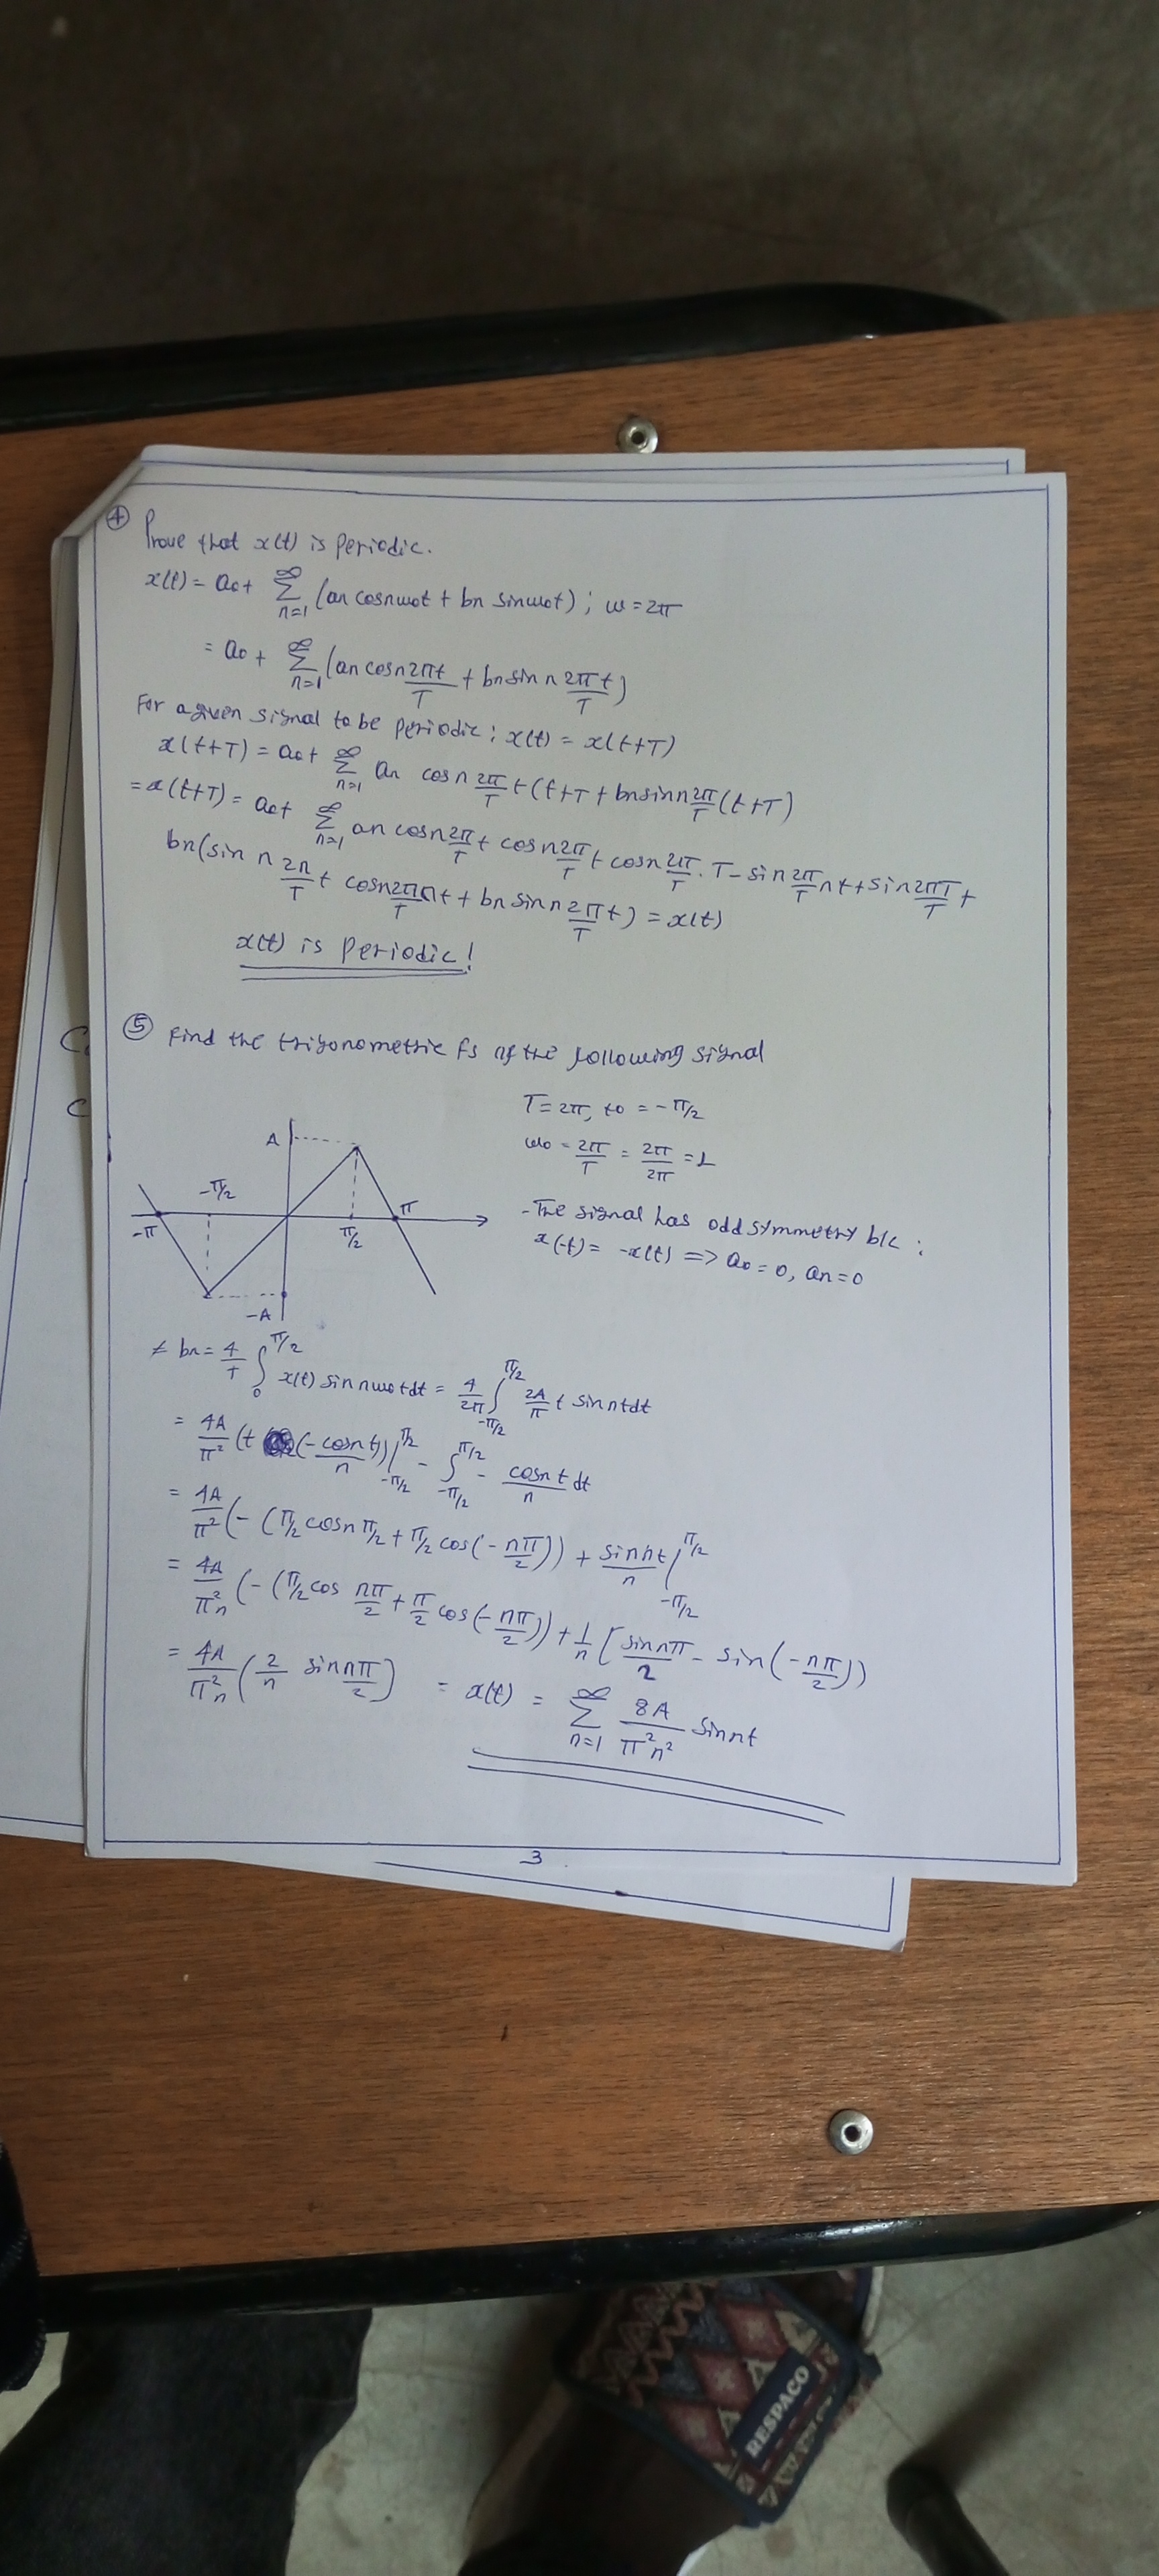 ④ Prove that x(t) is periodic.
x(t) = a0 + ∞∑n=1 (an cosnω0t + bn sinω0t) ; ω = 2π
= a0 + ∞∑n=1 (an cosn 2πt/T + bn sin n 2πt/T)
For a given signal to be periodic ; x(t) = x(t+T)
x(t+T) = a0 + ∞∑n=1 an cosn 2π/T t (t+T + bn sin n 2π/T (t+T)
= x(t+T) = a0 + ∞∑n=1 an cosn 2π/T t cosn 2π/T t cosn 2π/T . T - sin 2π/T nt + sin 2πT/T +
bn(sin n 2π/T t cosn 2πn/T t + bn sin n 2π/T t) = x(t)
x(t) is periodic!
⑤ Find the trigonometric fs of the following signal
T = 2π, t0 = -π/2
ω0 = 2π/T = 2π/2π = 1
A
-π/2
-π
π/2
π
-A
- The signal has odd symmetry b/c :
x(-t) = -x(t) => a0 = 0, an = 0
≠ bn = 4/T ∫0^π/2 x(t) sin nω0t dt = 4/2π ∫-π/2^π/2 2A/π t sin nt dt
= 4A/π² (t (-cosnt/n))|-π/2^π/2 - ∫-π/2^π/2 - cosnt/n dt
= 4A/π² (- (π/2 cosn π/2 + π/2 cos(-nπ/2)) + sin nt/n |-π/2^π/2
= 4A/π²n (- (π/2 cos nπ/2 + π/2 cos(-nπ/2)) + 1/n [sin nπ/2 - sin(-nπ/2))
= 4A/π²n (2/n sin nπ/2) = x(t) = ∞∑n=1 8A/π²n² sin nt
3
RESPACO